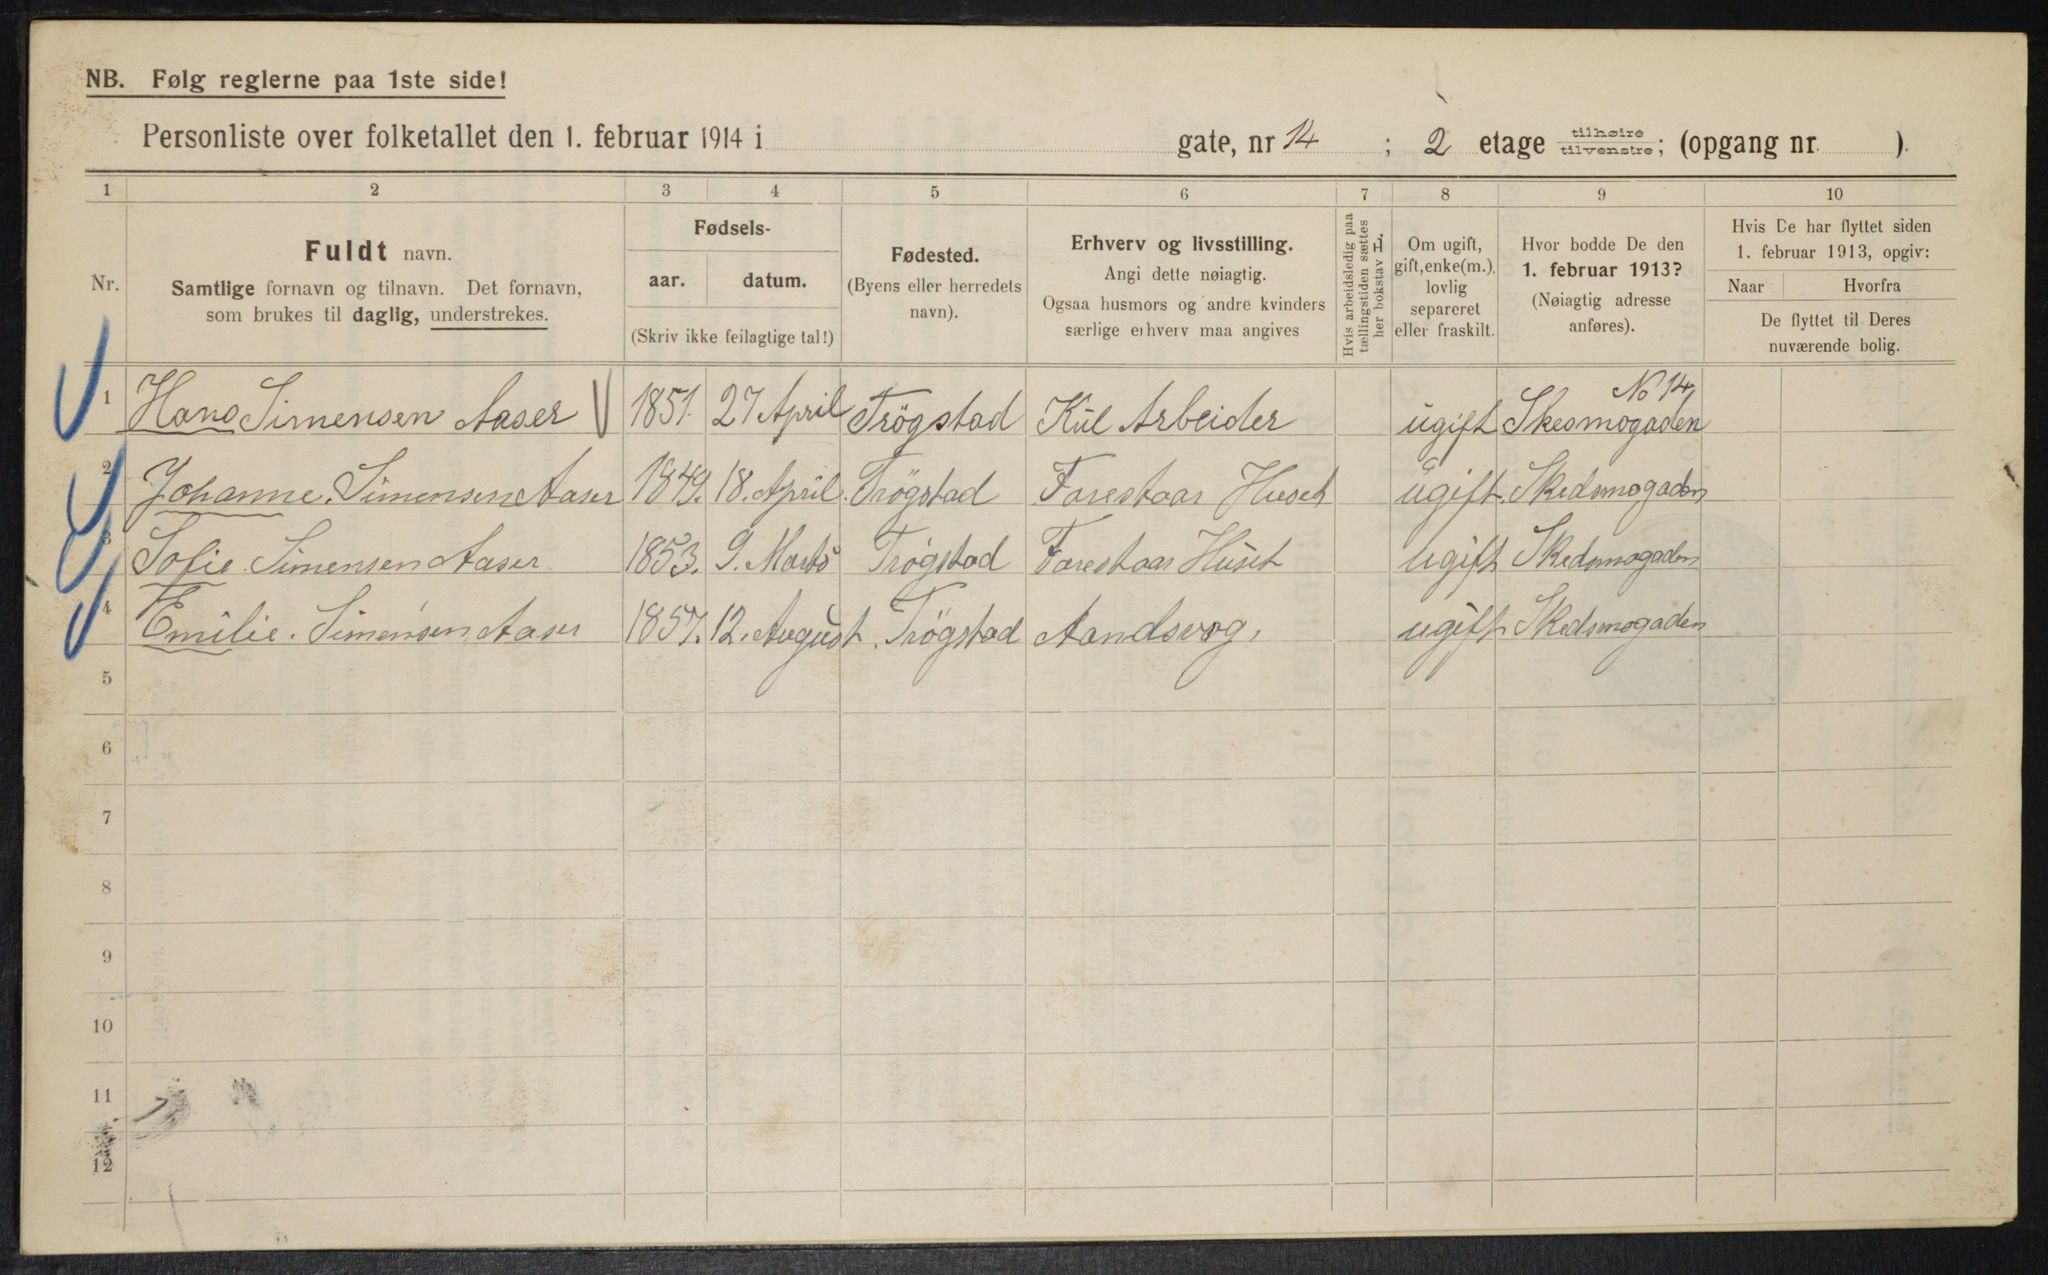 NB. Følg reglerne paa 1ste side!
Personliste over folketallet den 1. februar 1914 i gate, nr 14 ; 2 etage tilhøire tilvenstre; (opgang nr. ).
1 2 3 4 5 6 7 8 9 10
Nr.
Fuldt navn.
Samtlige fornavn og tilnavn. Det fornavn,
som brukes til daglig, understrekes.
Fødsels-
aar. datum.
(Skriv ikke feilagtige tal!)
Fødested.
(Byens eller herredets
navn).
Erhverv og livsstilling.
Angi dette nøiagtig.
Ogsaa husmors og andre kvinders
særlige erhverv maa angives
Hvis arbeidsledig paa
tællingstiden sættes
her bokstav L.
Om ugift,
gift, enke(m.),
lovlig
separeret
eller fraskilt.
Hvor bodde De den
1. februar 1913?
(Nøiagtig adresse
anføres).
Hvis De har flyttet siden
1. februar 1913, opgiv:
Naar Hvorfra
De flyttet til Deres
nuværende bolig.
No 14
1 Hans Simensen Aaser 1851. 27 April Trögstad Kul Arbeider ugift Skesmogaden
2 Johanne. Simensen Aaser 1849. 18. April. Trögstad Forestaar Huset ugift. Skedsmogaden
3 Sofie. Simensen Aaser 1853. 9. Marts Trögstad Forestaar Huset ugift Skedsmogaden
4 Emilie. Simensen Aaser 1857. 12. August. Trögstad Aandsvag, ugift Skedsmogaden
5
6
7
8
9
10
11
12